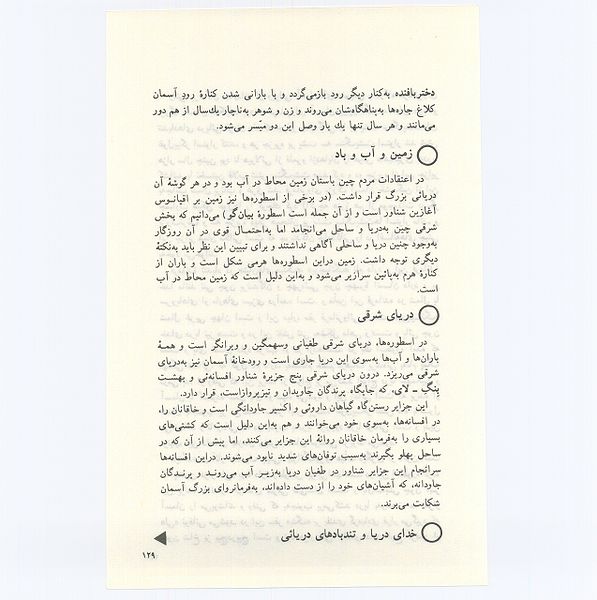 دختربافنده به‌کنار دیگر رود بازمی‌گردد و با بارانی شدن کنارهٔ رودِ آسمان
کلاغ جاره‌ها به‌پناهگاه‌شان می‌روند و زن و شوهر به‌ناچار یك‌سال از هم دور
می‌مانند و هر سال تنها یك بار وصل این دو میّسر می‌شود.
زمین و آب و باد
در اعتقادات مردم چین باستان زمین محاط در آب بود و در هر گوشهٔ آن
دریائی بزرگ قرار داشت. (در برخی از اسطوره‌ها نیز زمین بر اقیانـوس
آغازین شناور است و از آن جمله است اسطورهٔ پیان‌گو) می‌دانیم که بخش
شرقی چین به‌دریا و ساحل می‌انجامد اما به‌احتمـال قوی در آن روزگار
به‌وجود چنین دریا و ساحلی آگاهی نداشتند و برای تبیین این نظر باید به‌نکتهٔ
دیگری توجه داشت. زمین دراین اسطوره‌ها هرمی شکل است و باران از
کنارهٔ هرم به‌پائین سرازیر می‌شود و به‌این دلیل است که زمین محاط در آب
است.
دریای شرقی
در اسطوره‌ها، دریای شرقی طغیانی وسهمگین و ویرانگر است و همـهٔ
باران‌ها و آب‌ها به‌سوی این دریا جاری است و رودخانهٔ آسمان نیز به‌دریای
شرقی می‌ریزد. درون دریای شرقی پنج جزیرهٔ شناور افسانه‌ئی و بهشت
پنگ ـ لای، که جایگاه پرندگان جاویدان و تیزپروازاست، قرار دارد.
این جزایر رستن‌گاه گیاهان داروئی و اکسیر جاودانگی است و خاقانان را،
در افسانه‌ها، به‌سوی خود می‌خوانند و هم به‌این دلیل است که کشتی‌های
بسیاری را به‌فرمان خاقانان روانهٔ این جزایر می‌کنند، اما پیش از آن که در
ساحل پهلو بگیرند به‌سبب توفان‌های شدید نابود می‌شوند. دراین افسانه‌ها
سرانجام این جزایر شناور در طغیان دریا به‌زیـر آب می‌رونـد و پرنـدگان
جاودانه، که آشیان‌های خود را از دست داده‌اند، به‌فرمانروای بزرگ آسمان
شکایت می‌برند.
خدای دریا و تندبادهای دریائی
۱۲۹